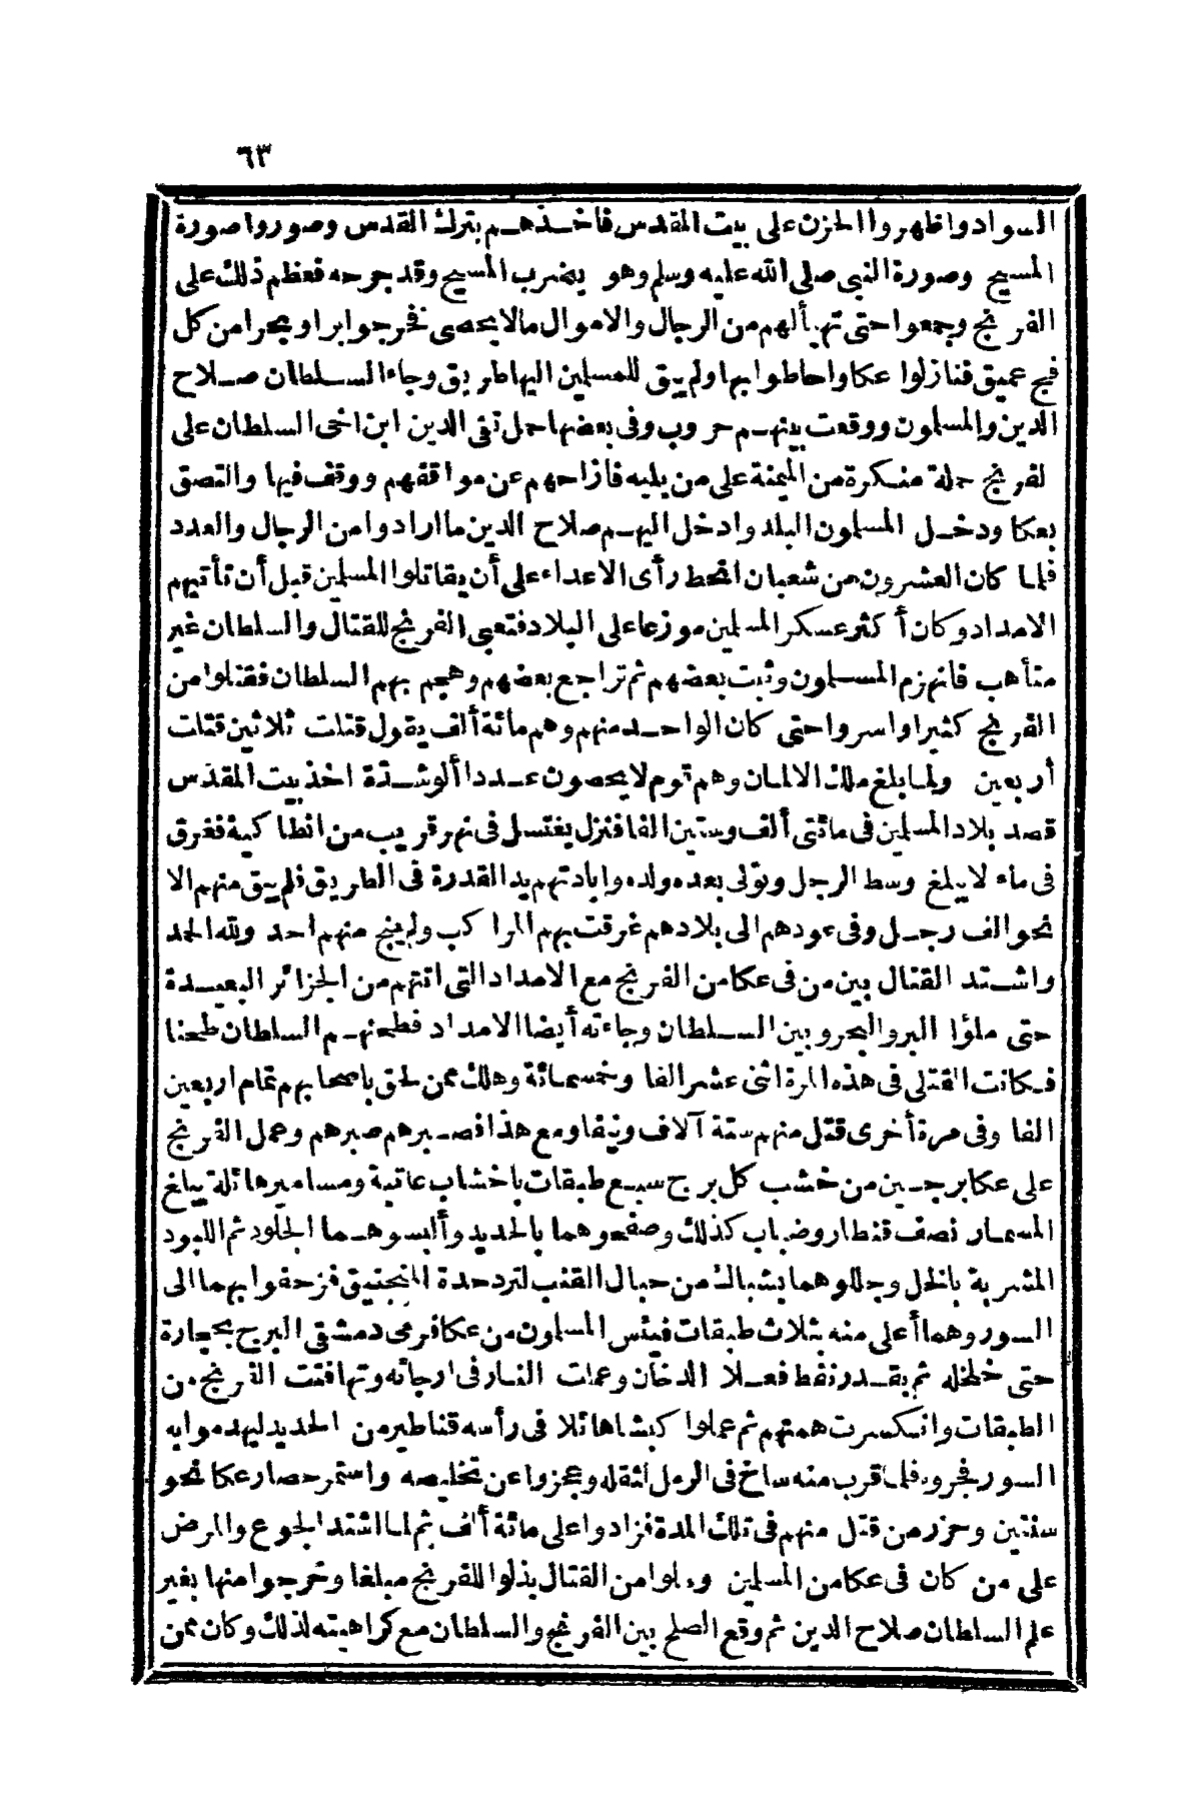 ٦٣
السواد واظهروا الحزن على بيت المقدس فاخذهم بترك القدس وصوروا صورة
المسيح وصورة النبى صلى الله عليه وسلم وهو يضرب المسيح وقد جرحه فعظم ذلك على
الفرنج وجمعوا حتى تهيأ لهم من الرجال والاموال مالا يحصى فخرجوا برا وبحرا من كل
فج عميق فنازلوا عكا واحاطوا بها ولم يبق للمسلمين اليها طريق وجاء السلطان صلاح
الدين والمسلمون ووقعت بينهم حروب وفى بعضها حمل تقى الدين ابن اخى السلطان على
لفرنج حملة منكرة من الميمنة على من يليه فازاحهم عن مواقفهم ووقف فيها والتصق
بعكا ودخل المسلمون البلد وادخل اليهم صلاح الدين ما ارادوا من الرجال والعدد
فلما كان العشرون من شعبان انحط رأى الاعداء على أن يقاتلوا المسلمين قبل أن تأتيهم
الامداد وكان أكثر عسكر المسلمين موزعا على البلاد فتعبى الفرنج للقتال والسلطان غير
متأهب فانهزم المسلمون وثبت بعضهم ثم تراجع بعضهم وهجم بهم السلطان فقتلوا من
الفرنج كثيرا واسروا حتى كان الواحد منهم وهم مائة ألف يقول قتلت ثلاثين قتلت
أربعين ولما بلغ ملك الالمان وهم قوم لا يحصون عددا ألوشدة اخذ بيت المقدس
قصد بلاد المسلمين فى مائتى ألف وستين الفا فنزل يغتسل فى نهر قريب من انطاكية فغرق
فى ماء لا يبلغ وسط الرجل وتولى بعده ولده وابادتهم يد القدرة فى الطريق فلم يبق منهم الا
نحو الف رجل وفى عودهم الى بلادهم غرقت بهم المراكب ولم ينج منهم احد ولله الحمد
واشتد القتال بين من فى عكا من الفرنج مع الامداد التى اتتهم من الجزائر البعيدة
حتى ملؤا البر والبحر وبين السلطان وجاءته أيضا الامداد فطحنهم السلطان طحنا
فكانت القتلى فى هذه المرة اثنى عشر الفا وخمسمائة وهلك ممن لحق باصحابهم تمام اربعين
الفا وفى مرة أخرى قتل منهم ستة آلاف ونيفا ومع هذا فصبرهم صبرهم وعمل الفرنج
على عكا برجين من خشب كل برج سبع طبقات باخشاب عاتية ومسامير هائلة يبلغ
المسمار نصف قنطار وضباب كذلك وصفحوهما بالحديد وألبسوهما الجلود ثم اللبود
المشربة بالخل وجللوهما بشباك من حبال القنب لترد حدة المنجنيق فزحفوا بهما الى
السور وهما أعلى منه بثلاث طبقات فيئس المسلمون من عكا فرمى دمشقى البرج بحجارة
حتى خلخله ثم بقدر نفط فعلا الدخان وعملت النار فى ارجائه وتهافتت الفرنج من
الطبقات وانكسرت همتهم ثم عملوا كبشا هائلا فى رأسه قناطير من الحديد ليهدموا به
السور فجروه فلما قرب منه ساخ فى الرمل لثقله وعجزوا عن تخليصه واستمر حصار عكا نحو
سنتين وحزر من قتل منهم فى تلك المدة فزادوا على مائة ألف ثم لما اشتد الجوع والمرض
على من كان فى عكا من المسلمين وملوا من القتال بذلوا للفرنج مبلغا وخرجوا منها بغير
علم السلطان صلاح الدين ثم وقع الصلح بين الفرنج والسلطان مع كراهيته لذلك وكان ممن